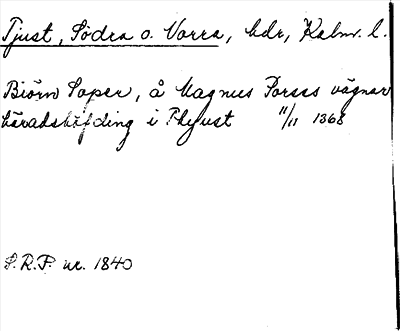 Tjust, Södra o. Norra, hdr, Kalm. l.
Biörn Soper, å Magnus Porses vägnar
häradshöfding i Thyust 11/11 1368
S.R.P. nr. 1840